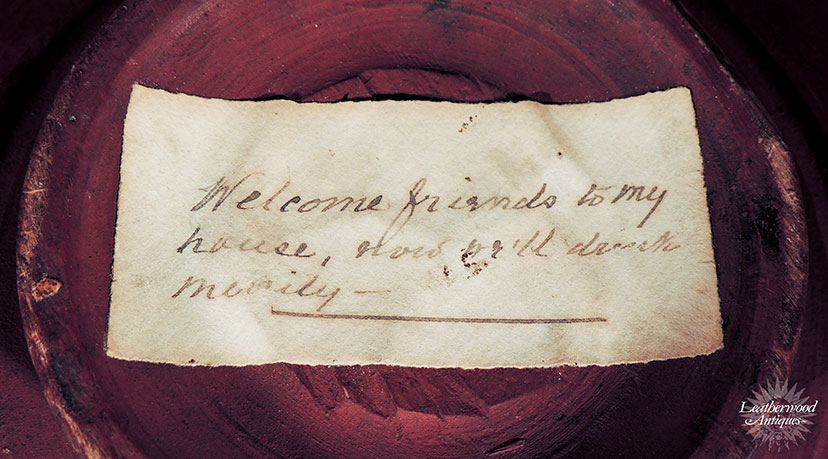 Welcome friends to my
house, now we'll drink
merrily —
Leatherwood
Antiques